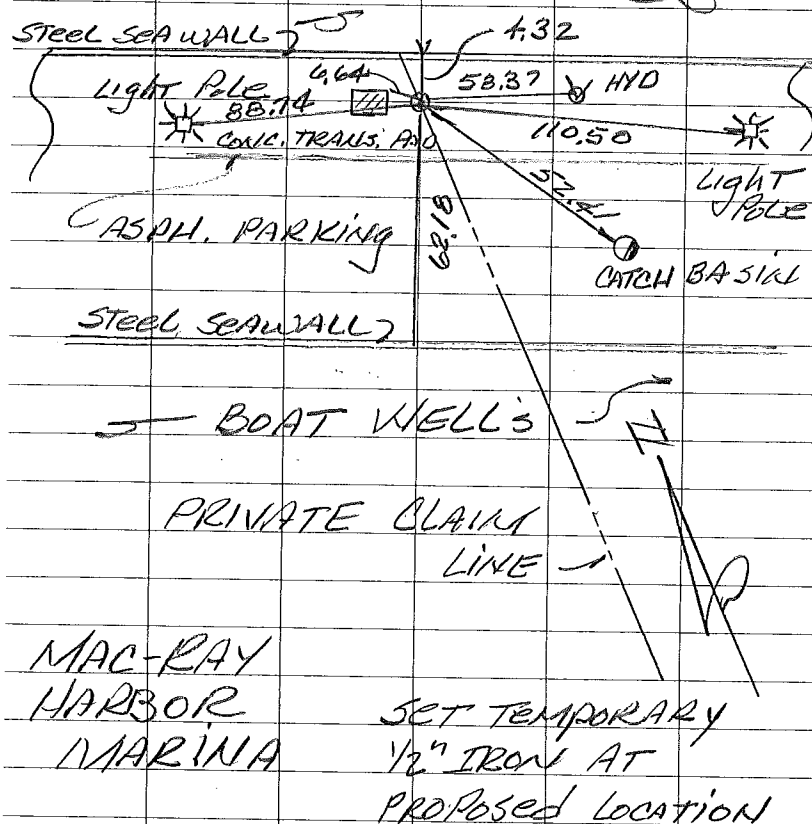 STEEL SEAWALL
4.32
LIGHT POLE
6.64
58.37
HYD
88.74
110.50
CONC. TRANS. PAD
LIGHT POLE
52.41
62.18
ASPH. PARKING
CATCH BASIN
STEEL SEAWALL
BOAT WELL'S
N
PRIVATE CLAIM
LINE
MAC-RAY
HARBOR
MARINA
SET TEMPORARY
1/2" IRON AT
PROPOSED LOCATION